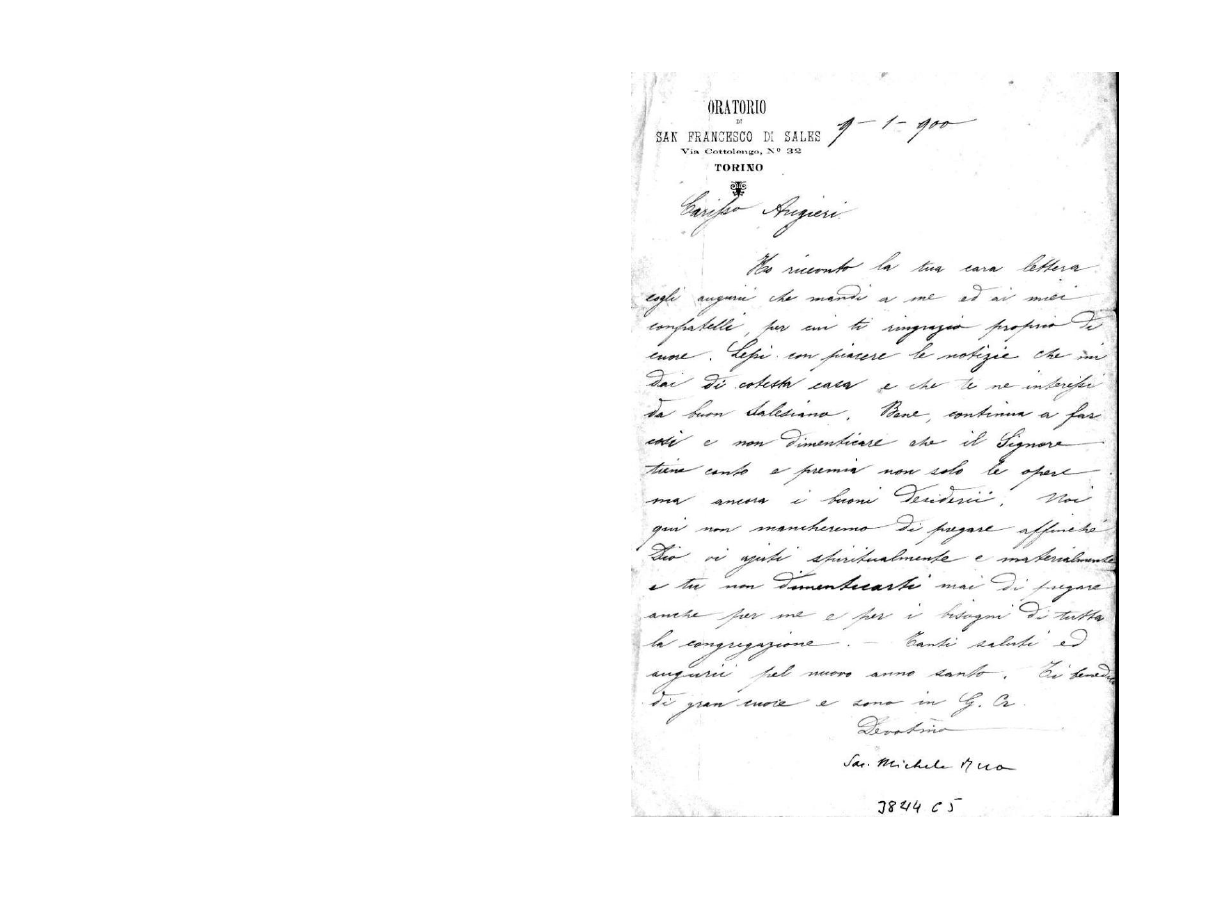 ORATORIO
DI
SAN FRANCESCO DI SALES
Via Cottolengo, Nº 32
TORINO
9 - 1 - 900
Carisso Augieri
Ho ricevuto la tua cara lettera
cogli augurii che mandi a me ed ai miei
confratelli, per cui ti ringrazio proprio di
cuore. Lessi con piacere le notizie che mi
dai di cotesta casa e che te ne interessi
da buon Salesiano. Bene, continua a far
così e non dimenticare che il Signore
tiene conto e premia non solo le opere
ma ancora i buoni desiderii. Noi
qui non mancheremo di pregare affinchè
Dio vi ajuti spiritualmente e materialmente
e tu non dimenticarti mai di pregare
anche per me e per i bisogni di tutta
la congregazione. — Tanti saluti ed
augurii pel nuovo anno santo. Ti benedico
di gran cuore e sono in G. C.
Devotmo
Sac. Michele Rua
3844 C5